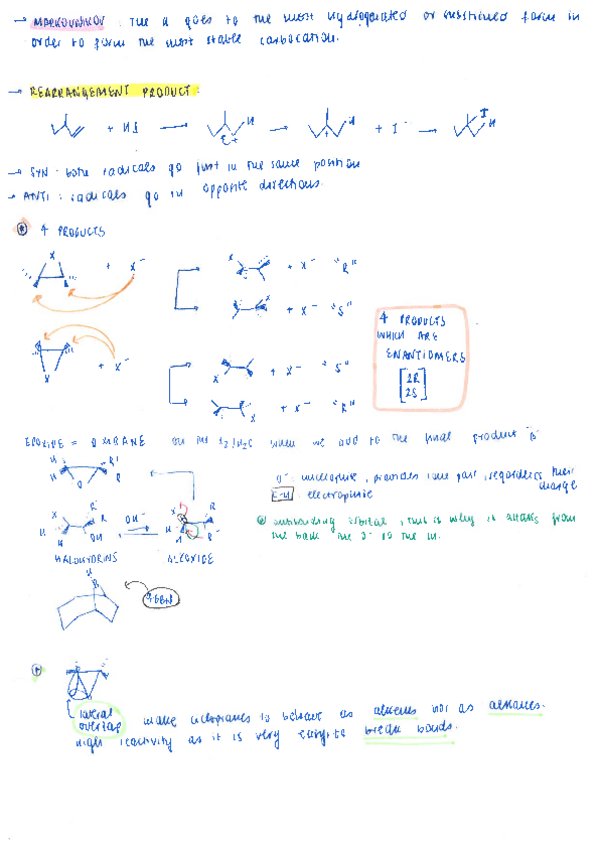 → MARKOVNIKOV : The H goes to the most hydrogenated or substituted form in
order to form the most stable carbocation.
→ REARRANGEMENT PRODUCT:
+ HI → H C+ → + H + I⁻ → I H
→ SYN : both radicals go just in the same position
→ ANTI : radicals go in opposite directions.
* 4 PRODUCTS
X + X⁻ X + X⁻ "R"
X + X⁻ "S"
4 PRODUCTS
WHICH ARE
ENANTIOMERS
[2R
2S]
X + X⁻ X + X⁻ "S"
X + X⁻ "R"
EPOXIDE = OXIRANE when we add to the final product
H R' O⁻ : nucleophile, provides pair, regardless their
H O R charge
: electrophile
X R' R OH⁻ X R' antibonding orbital, this is why it attacks from
H H OH H O⁻ the back the
HALOHYDRINS ALCOXIDE
H
B
lateral make cyclopropanes to behave as alkenes not as alkanes.
overlap
high reactivity as it is very easy to break bonds.